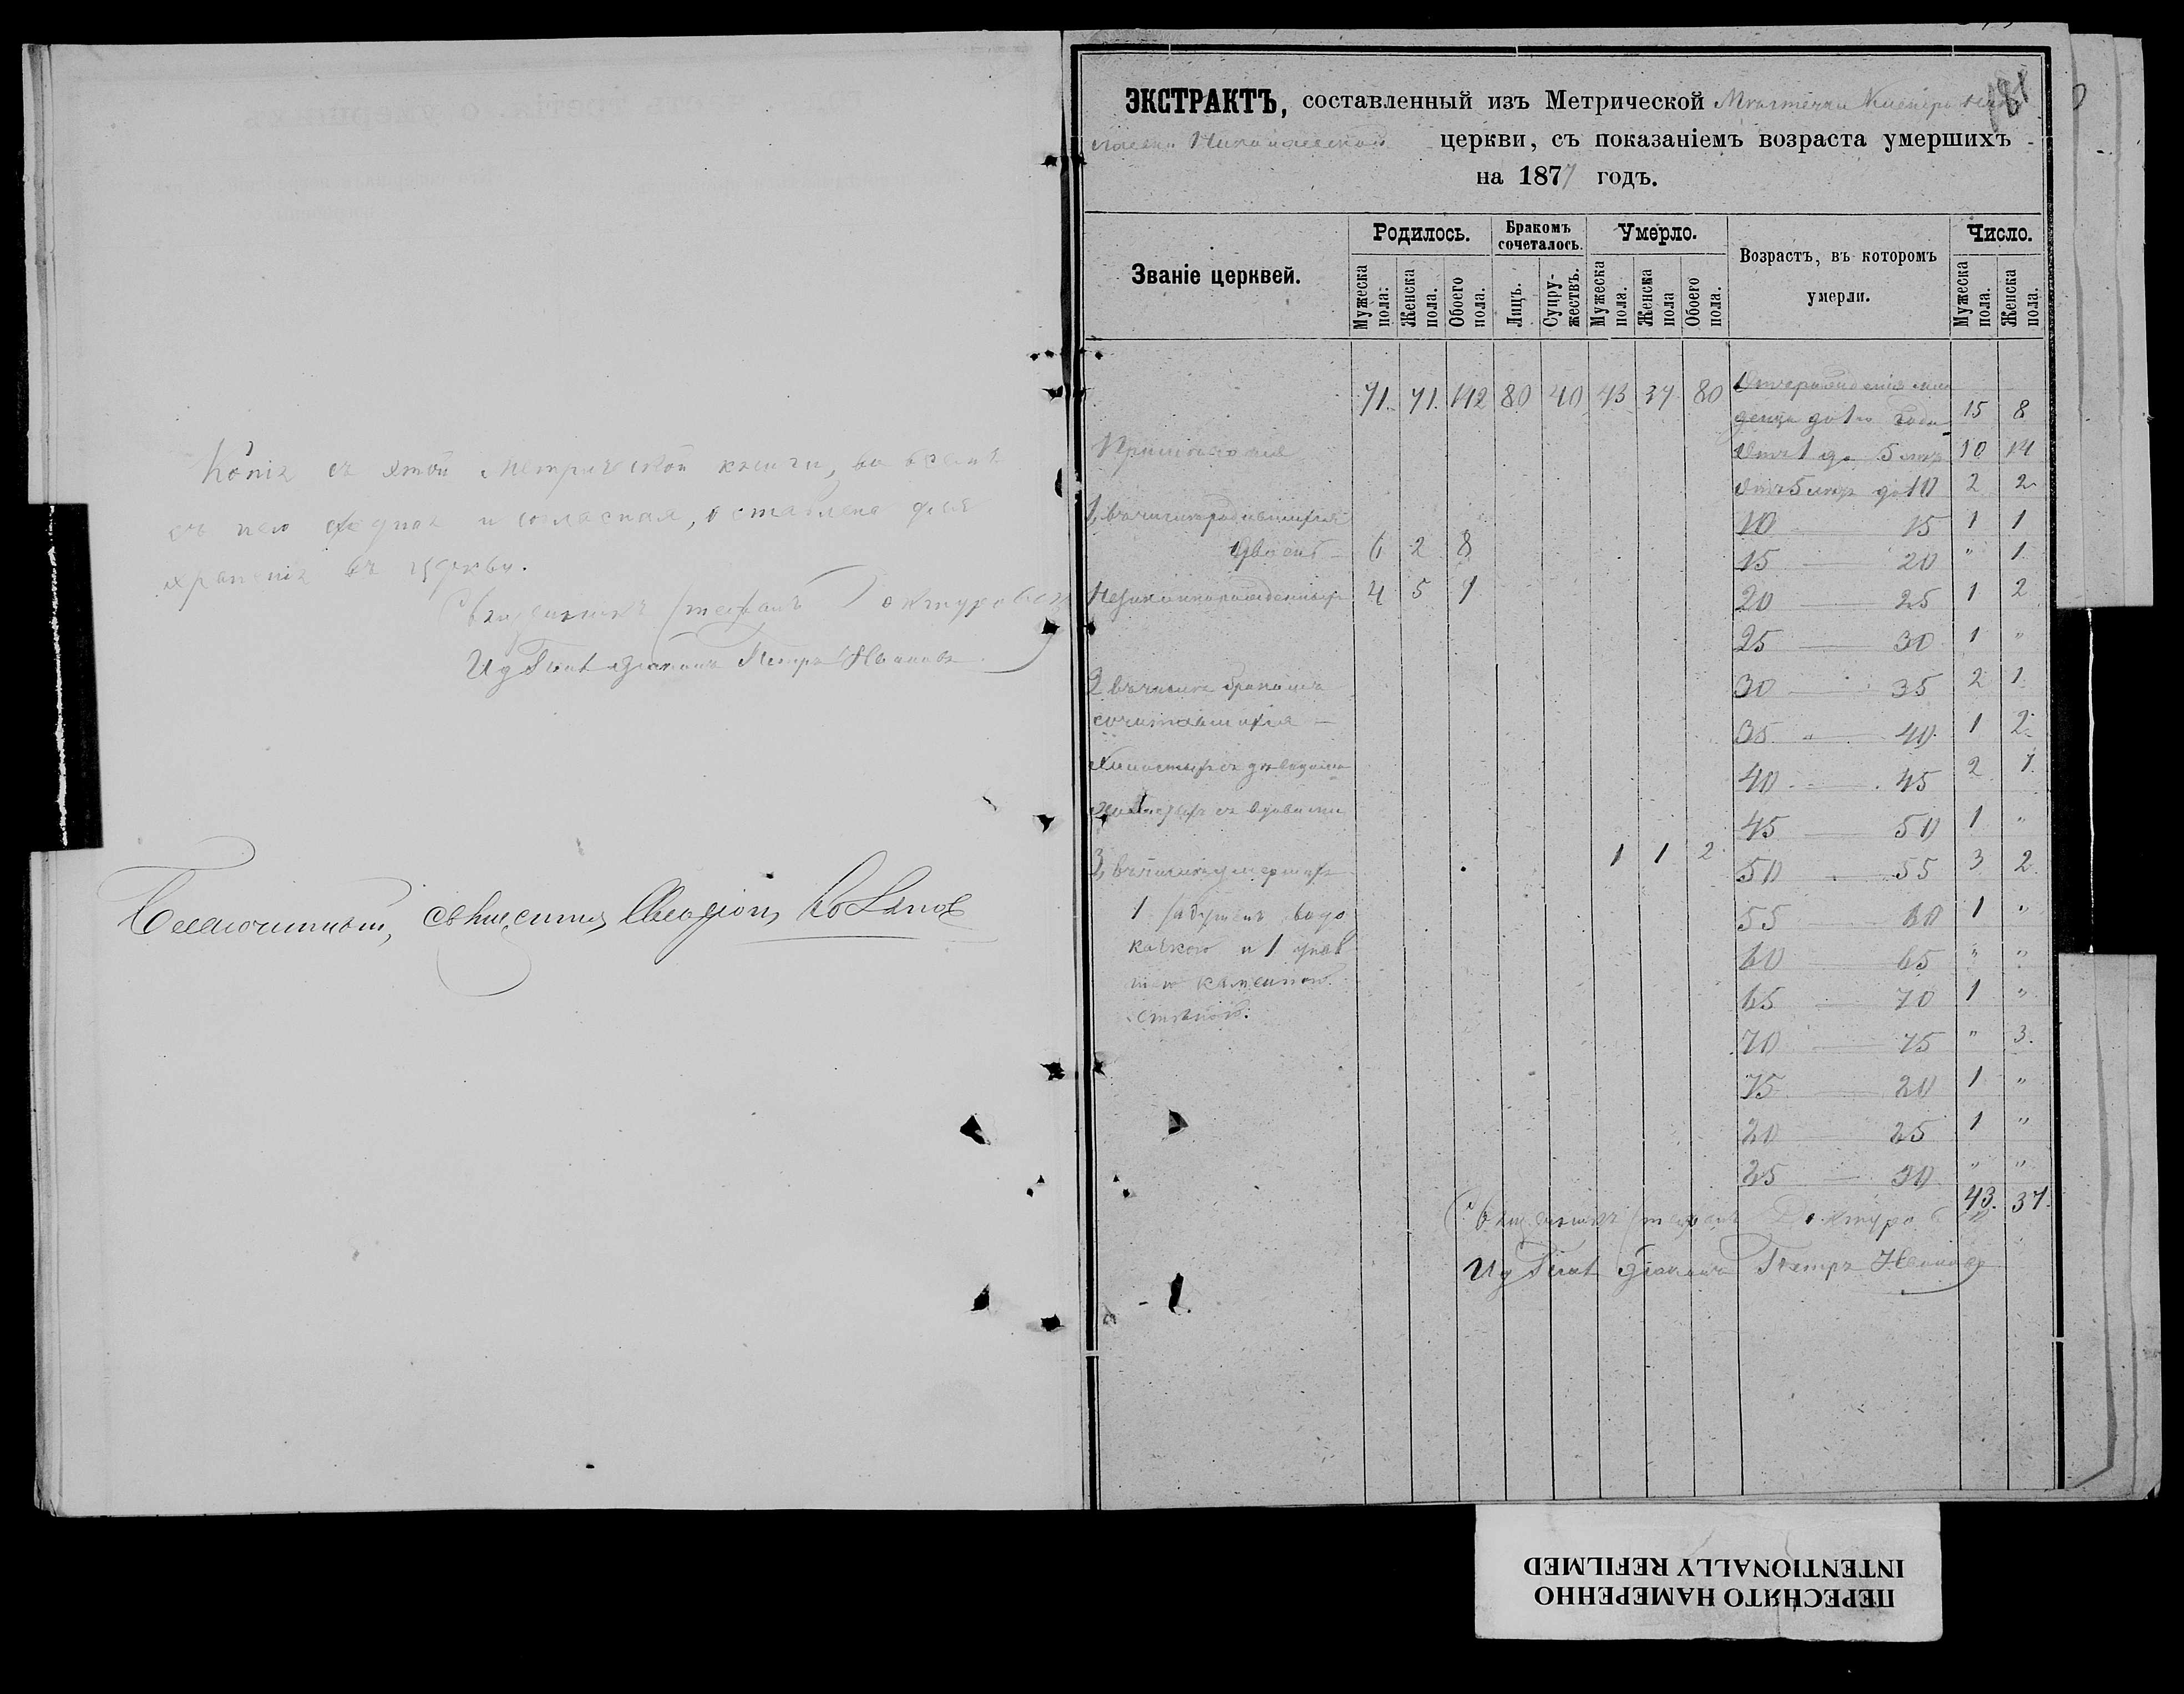 Копія съ этой метрической книги, во всемъ
съ нею сходная и согласная, оставлена для
храненія въ церкви.
Священникъ Стефанъ
И д Псал діаконъ Петръ Ивановъ
Благочинный, священникъ
181
ЭКСТРАКТЪ, составленный изъ Метрической Мѣстечка
Николаевской церкви, съ показаніемъ возраста умершихъ
на 1877 годъ.
Званіе церквей.
Родилось.
Бракомъ сочеталось.
Умерло.
Возрастъ, въ которомъ умерли.
Число.
Мужеска пола:
Женска пола.
Обоего пола.
Лицъ.
Супружествъ.
Мужеска пола.
Женска пола
Обоего пола.
Мужеска пола.
Женска пола.
71. 71. 142 80 40 43 37 80
Отъ рожденія мла
денца до 1го года 15 8
Примѣчаніе
Отъ 1 до 5 лѣтъ 10 14
Отъ 5 лѣтъ до 10 2 2
1, въ числѣ родившихся
10 — 15 1 1
двоенъ — 6 2 8
15 — 20 " 1
Незаконнорожденныхъ 4 5 9
20 — 25 1 2
25 — 30 1 "
2 въ числѣ бракомъ
30 — 35 2 1
сочитавшихся —
35 " 40 1 2
Холостыхъ съ дѣвицами
40 — 45 2 1
холостыхъ съ вдовами
45 — 50 1 "
3, въ числѣ умершихъ 1 1 2
50 — 55 3 2
1
55 — 60 1 "
качкою и 1
60 — 65 " "
каменною
65 — 70 1 "
стѣною.
70 — 75 " 3.
75 — 80 1 "
80 — 85 1 "
85 — 90 " "
43. 37.
Священникъ Стефанъ
И д Псал діаконъ Петръ Ивановъ
ПЕРЕСНЯТО НАМЕРЕННО
INTENTIONALLY REFILMED